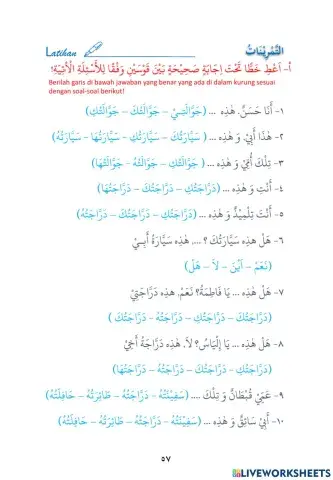 Latihan
التَّمْرِيْنَاتُ
أ- اَعْطِ خَطًّا تَحْتَ اِجَابَةٍ صَحِيْحَةٍ بَيْنَ قَوْسَيْنِ وَفْقًا لِلْأَسْئِلَةِ الْآتِيَةِ!
Berilah garis di bawah jawaban yang benar yang ada di dalam kurung sesuai
dengan soal-soal berikut!
١- أَنَا حَسَنٌ. هٰذِهِ ... (جَوَّالَتِيْ - جَوَّالَتُكَ - جَوَّالَتُكِ)
٢- هٰذَا أَبِيْ. وَ هٰذِهِ ... (سَيَّارَتُكَ - سَيَّارَتُكِ - سَيَّارَتُهَا - سَيَّارَتُهُ)
٣- تِلْكَ أُمِّيْ وَ هٰذِهِ ... (جَوَّالَتُكِ - جَوَّالَتُهُ - جَوَّالَتُهَا)
٤- أَنْتِ وَ هٰذِهِ ... (دَرَّاجَتُكِ - دَرَّاجَتُكَ - دَرَّاجَتُهَا)
٥- أَنْتَ تِلْمِيْذٌ وَ هٰذِهِ ... (دَرَّاجَتُكِ - دَرَّاجَتُكَ - دَرَّاجَتُهُ)
٦- هَلْ هٰذِهِ سَيَّارَتُكَ ؟ ...، هٰذِهِ سَيَّارَةُ أَبِيْ
(نَعَمْ - اَيْنَ - لَا - هَلْ)
٧- هَلْ هٰذِهِ ... يَا فَاطِمَةُ؟ نَعَمْ. هٰذِهِ دَرَّاجَتِيْ
(دَرَّاجَتُكَ - دَرَّاجَتُكِ - دَرَّاجَتُهُ - دَرَّاجَتُكَ)
٨- هَلْ هٰذِهِ ... يَا إِلْيَاسُ؟ لَا. هٰذِهِ دَرَّاجَةُ أَخِيْ
(دَرَّاجَتُكِ - دَرَّاجَتُكَ - دَرَّاجَتُهُ - دَرَّاجَتُهَا)
٩- عَمِّيْ قُبْطَانٌ وَ تِلْكَ .... (سَفِيْنَتُهُ - دَرَّاجَتُهُ - طَائِرَتُهُ - حَافِلَتُهُ)
١٠- أَبِيْ سَائِقٌ وَ هٰذِهِ ... (سَفِيْنَتُهُ - دَرَّاجَتُهُ - طَائِرَتُهُ - حَافِلَتُهُ)
٥٧
LIVEWORKSHEETS